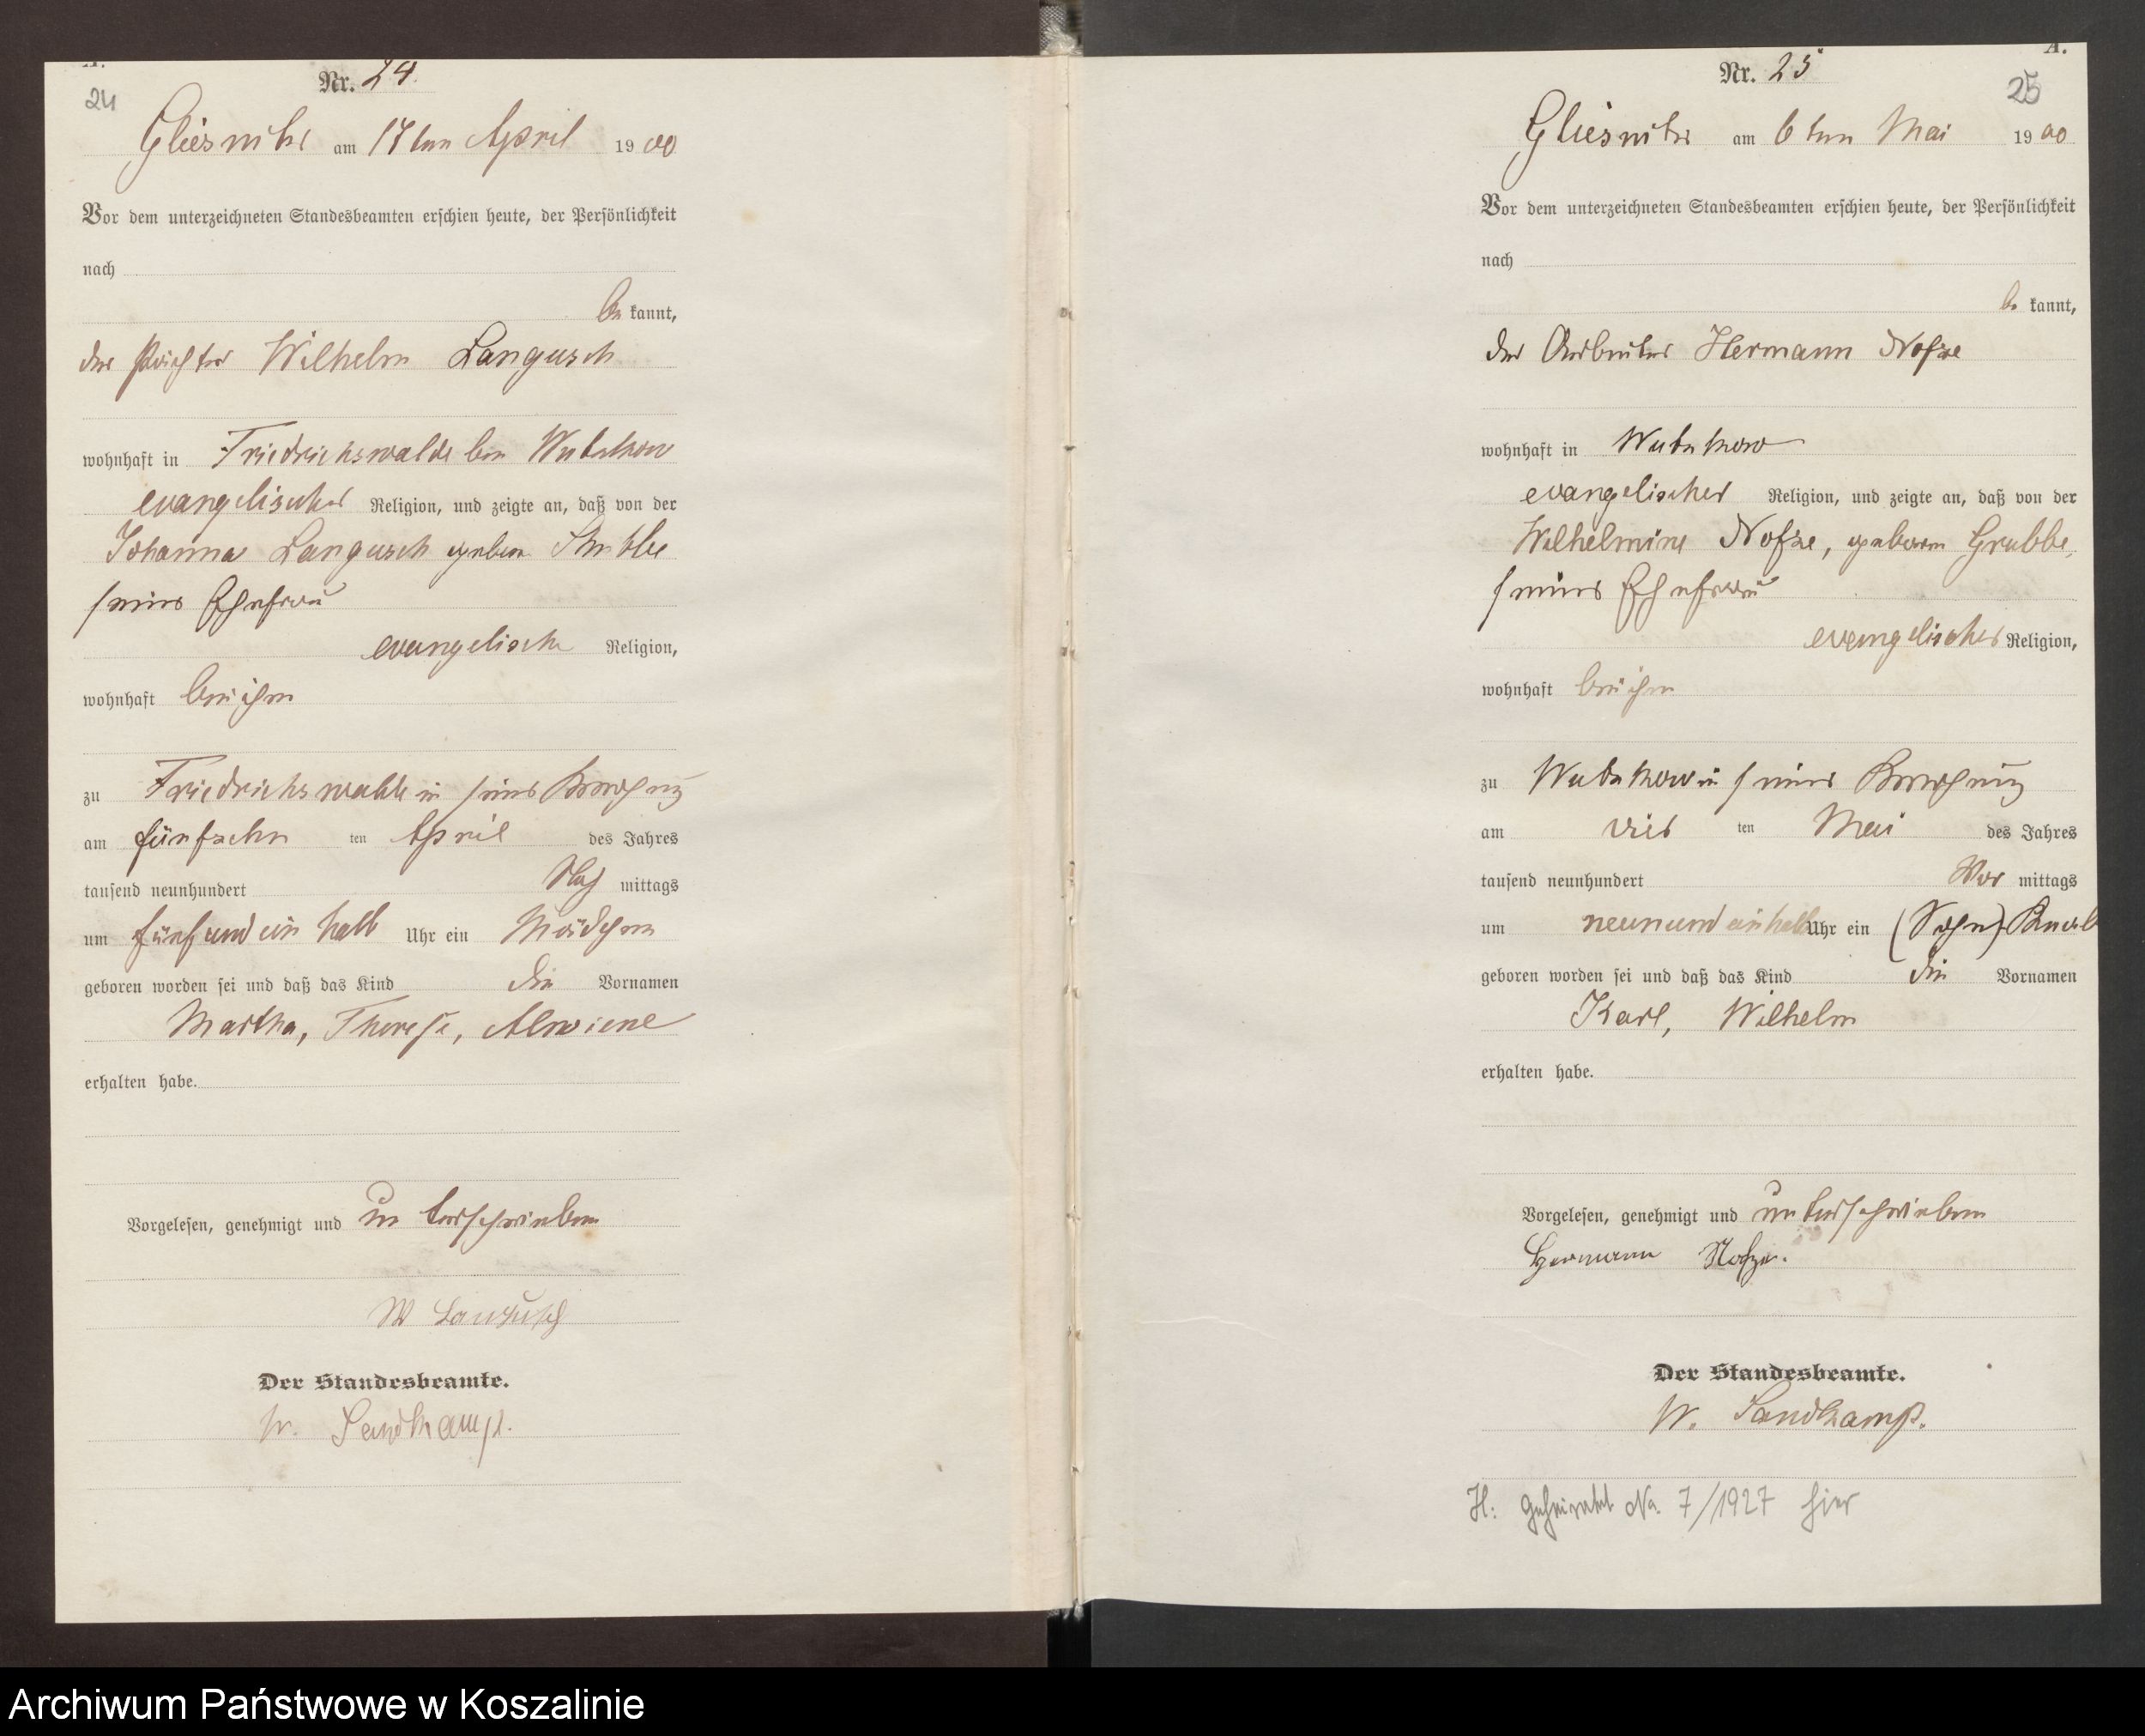 A.
Nr. 24
24
Gliesnitz am 17ten April 1900
Vor dem unterzeichneten Standesbeamten erschien heute, der Persönlichkeit
nach
bekannt,
der Pächter Wilhelm Langusch
wohnhaft in Friedrichswalde bei
evangelischer Religion, und zeigte an, daß von der
Johanna Langusch geboren
seiner Ehefrau
evangelische Religion,
wohnhaft bei ihm
zu Friedrichswalde in seiner Wohnung
am fünfzehn ten April des Jahres
tausend neunhundert Nachmittags
um fünf und ein halb Uhr ein Mädchen
geboren worden sei und daß das Kind die Vornamen
Martha, Therese, Alwiene
erhalten habe.
Vorgelesen, genehmigt und unterschrieben
W Langusch
Der Standesbeamte.
W. Sandkamp.
A.
Nr. 25
25
Gliesnitz am 6ten Mai 1900
Vor dem unterzeichneten Standesbeamten erschien heute, der Persönlichkeit
nach
bekannt,
der Arbeiter Hermann Nofze
wohnhaft in
evangelischer Religion, und zeigte an, daß von der
Wilhelmine Nofze, geboren Grubbe,
seiner Ehefrau
evangelischer Religion,
wohnhaft bei ihm
zu in seiner Wohnung
am vier ten Mai des Jahres
tausend neunhundert Vor mittags
um neun und ein halb Uhr ein (Sohn) Knabe
geboren worden sei und daß das Kind die Vornamen
Karl, Wilhelm
erhalten habe.
Vorgelesen, genehmigt und unterschrieben
Hermann Nofze.
Der Standesbeamte.
W. Sandkamp.
H: Geheiratet No. 7/1927 hier
Archiwum Państwowe w Koszalinie